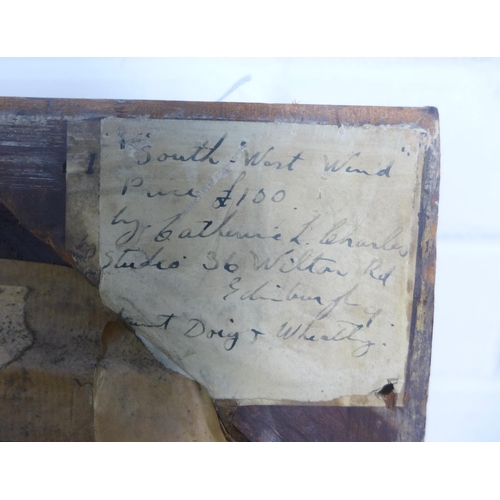 1 "South West Wind"
Price £100.
by Catherine L. Charles
Studio 36 Wilton Rd
Edinburgh
Doig & Wheatley.